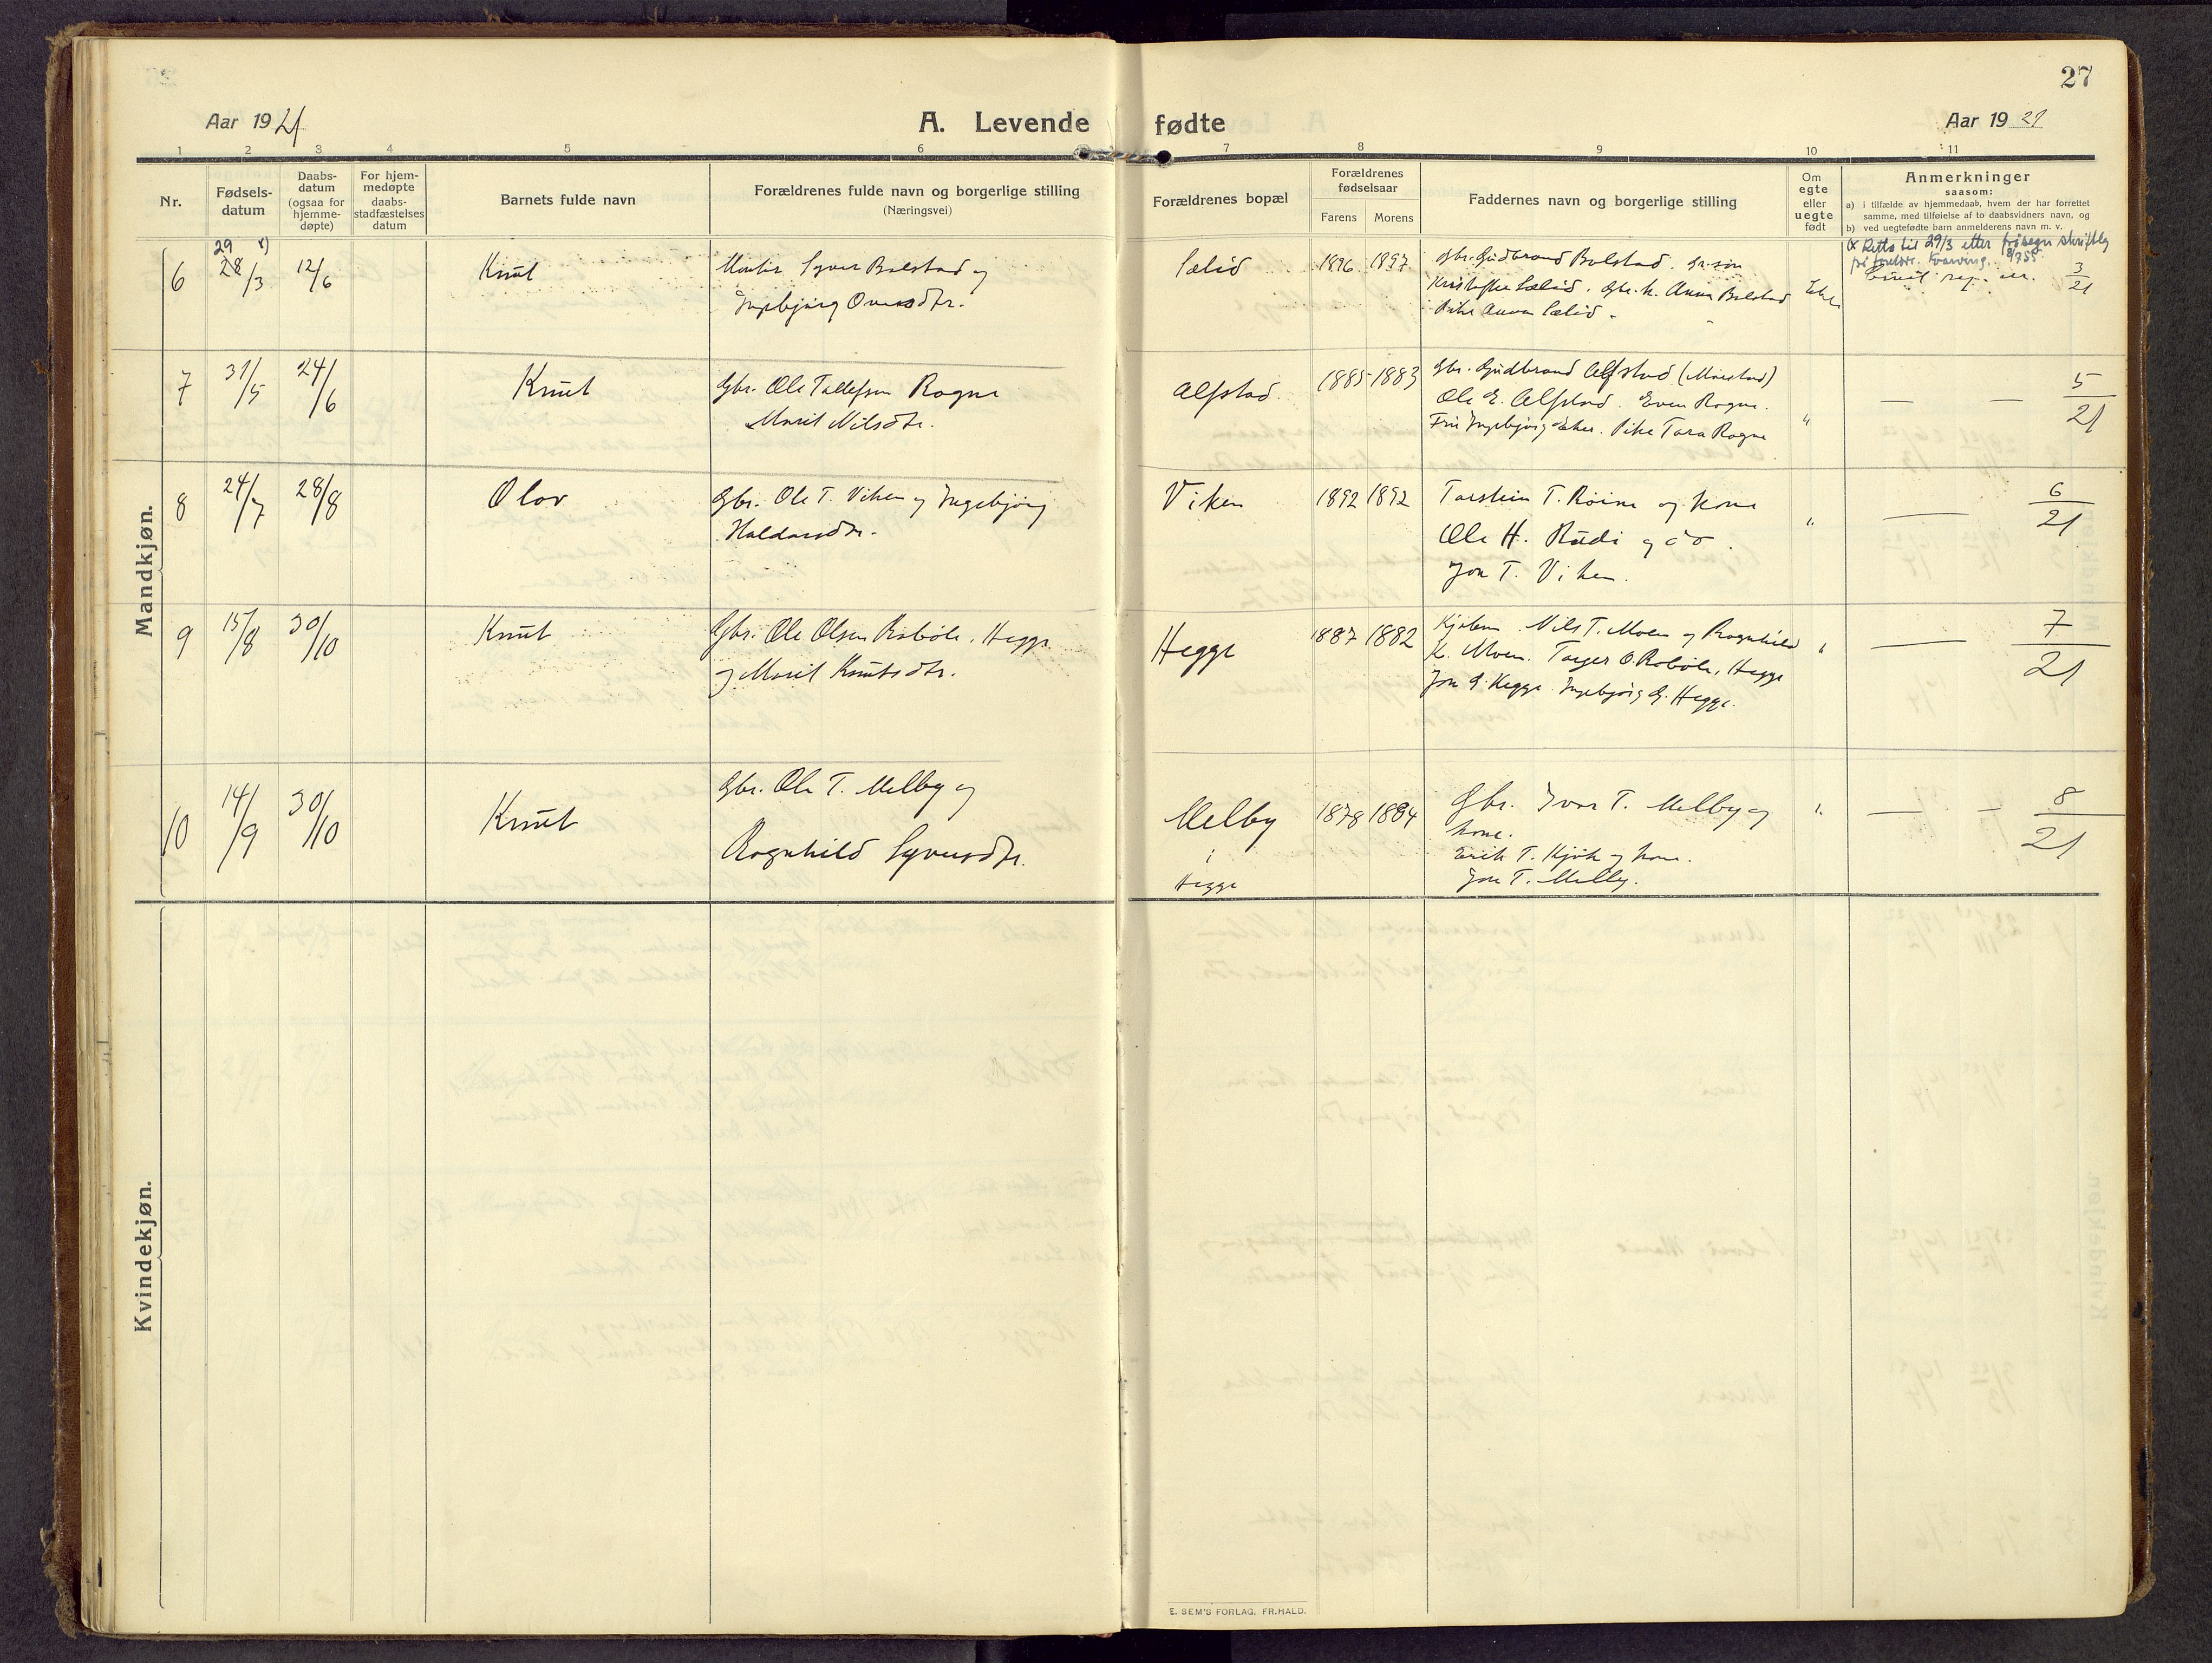 27
Aar 1921
A. Levende fødte
Aar 1921
1 2 3 4 5 6 7 8 9 10 11
Nr.
Fødsels-
datum
Daabs-
datum
(ogsaa for
hjemme-
døpte)
For hjem-
medøpte
daabs-
stadfæstelses
datum
Barnets fulde navn
Forældrenes fulde navn og borgerlige stilling
(Næringsvei)
Forældrenes bopæl
Forældrenes
fødselsaar
Farens Morens
Faddernes navn og borgerlige stilling
Om
egte
eller
uegte
født
Anmerkninger
saasom:
a) i tilfælde av hjemmedaab, hvem der har forrettet
samme, med tilføielse av to daabsvidners navn, og
b) ved uegtefødte barn anmelderens navn m. v.
Mandkjøn.
6
29 x)
28/3
12/6
Knut
Syver Bolstad og
Ingebjørg
Sælid
1896 1897
Gbr. Gudbrand Bolstad.
Kristoffer Sælid. Gbr. k. Anna Bolstad
Pike Anna Sælid.
x Retta til 29/3 etter skriftleg
3/21
7
31/5
24/6
Knut
Gbr. Ole Tollefsen Rogne
Marit Nilsdtr.
Alfstad.
1885 1883
Gbr. Gudbrand Alfstad
Ole E. Alfstad. Even Rogne.
Ingebjørg Pike Tora Rogne
"
— — 5/21
8
24/7
28/8
Olav
Gbr. Ole T. Viken og Ingebjørg
Haldorsdtr.
Viken
1892 1892
Torstein T. Røine og kone
Ole H. Rudi og do.
Jon T. Viken.
"
— 6/21
9
15/8
30/10
Knut
Gbr. Ole Olsen Robøle, Hegge
og Marit Knutsdtr.
Hegge
1887 1882
Nils T. Moen og Ragnhild
K. Moen. O. Robøle, Hegge
Jon G. Hegge. Ingebjørg G. Hegge.
"
— 7/21
10
14/9
30/10
Knut
Gbr. Ole T. Melby og
Ragnhild Syversdtr.
Melby
i
Hegge
1878 1884
Gbr. Ivar T. Melby og
kone.
Erik T. Kjøk og kone.
Jon T. Melby.
"
— — 8/21
Kvindekjøn.
E. SEM'S FORLAG, FR.HALD.